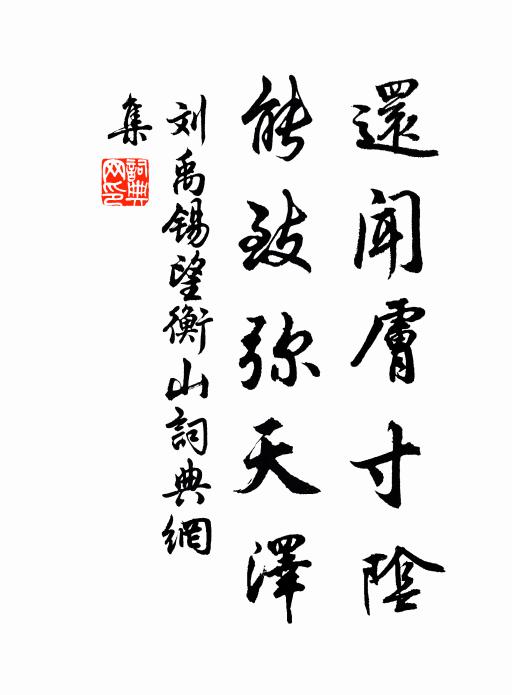 還闻膚寸陰
能致弥天澤
刘禹锡望衡山詞典網
集
詞典網印